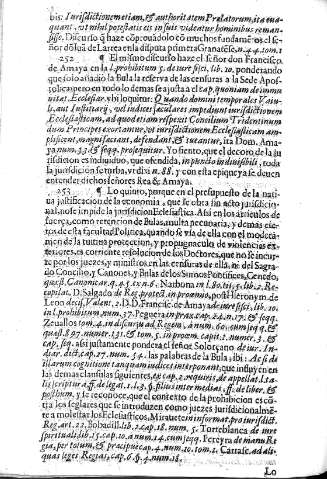 bis: Iurisdictionem etiam, & authoritatem Prælatorum, ita eua-
quant, vt nihil potestatis eis in suis videatur hominibus reman-
sisse. Discurso q̃ haze cõprouãdolo cõ muchos fundamẽtos el se-
ñor dõ Iuã de Larrea en la disputa primera Granatẽse, n. 44. tom. 1.
252 El mismo discurso haze el señor don Francisco
de Amaya en la l. prohibitum 5. de iure fisci, lib. 10. ponderando
que solo añadio la Bula la reserva de las censuras a la Sede Apos-
tolica, pero en todo lo demas se ajusta al cap. quoniam de immu-
nitat. Ecclesiar. vbi loquitur: Quando domini temporales
aut Iustitiarij, vel iudices sæculares impediunt iurisdictionem
Ecclesiasticam, ad quod etiam respexit Concilium Tridentinum
dum Principes exortantur, vt iurisdictionem Ecclesiasticam am-
magnifacient, defendant, & tueantur, ita Dom. Ama-
ya num. 33. & seqq. prosequitur. Yo siento, que el decoro de la ju
risdicion es individuo, que ofendida, in puncto indivisibili, toda
la jurisdicion se turba, n. 88. y con esta epiqueya se deuen
entender dichos señores Rea, & Amaya.
253 Lo quinto, porque en el presupuesto de la nati-
ua justificacion de la economia, que se obra sin acto jurisdicio-
nal, no se impide la jurisdicion Eclesiastica. Assi en los articulos de
fuerça, como retencion de Bulas, multa pecuniaria, y demas cier-
tos de esta facultad Politica, quando se vsa de ella con el modera-
men de la tuitiua proteccion, y propugnaculo de violencias ex-
teriores, es corriente resolucion de los Doctores, que no se incur-
re por los juezes, y ministros en las censuras de ella, ni del Sagra-
do Concilio, y Canones, y Bulas de los Sumos Pontifices, Cenedo,
quæst. Canonicar. q. 45. ex n. 6. Narbona en l. 80. tit. 5. lib. 2. Re-
copilat. D. Salgado de Reg. protect. in proœmio, post Hieronym. de
Leon decis. Valent. 2. I. D. Francisc. de Amaya de iure fisci, lib. 10.
in l. prohibitum num. 37. Peguera in prax. cap. 24. n. 17. & seqq.
Zeuallos tom. 4. in discursu ad Regem, à num. 60. cum seq. q. &
quæst. 897. numer. 131. & tom. 5. in proœm. capit. 2. numer. 3. &
cap. seq. assi justamente pondera el señor Solorçano de iur. In-
diar. dict. cap. 27. num. 54. las palabras de la Bula ibi: Ac si de
illarum cognitione tanquam iudices interponant, que influyen en
las demas clausulas siguientes, ex cap. 2. requiris, de appellat. l. ta-
lis scriptura ff. de legat. 1. l. 3. §. filius inter medias, ff. de liber. &
posthum. y se reconoce, que el contexto de la prohibicion es cõ-
tra los seglares que se introduzen como juezes jurisdicionalmen-
te a molestar los Eclesiasticos, Miraute en informat. pro iurisdict.
Reg. art. 22. Bobadill. lib. 2. cap. 18. num. 5. Torreblanca de iure
spirituali, lib. 15. cap. 10. à num. 14. cum seqq. Pereyra de manu Re
gia, per totum, & præcipuè cap. 4. num. 10. tom. 1. Carrasc. ad ali-
quas leges Regias, cap. 6. §. 4. num. 18.
Lo